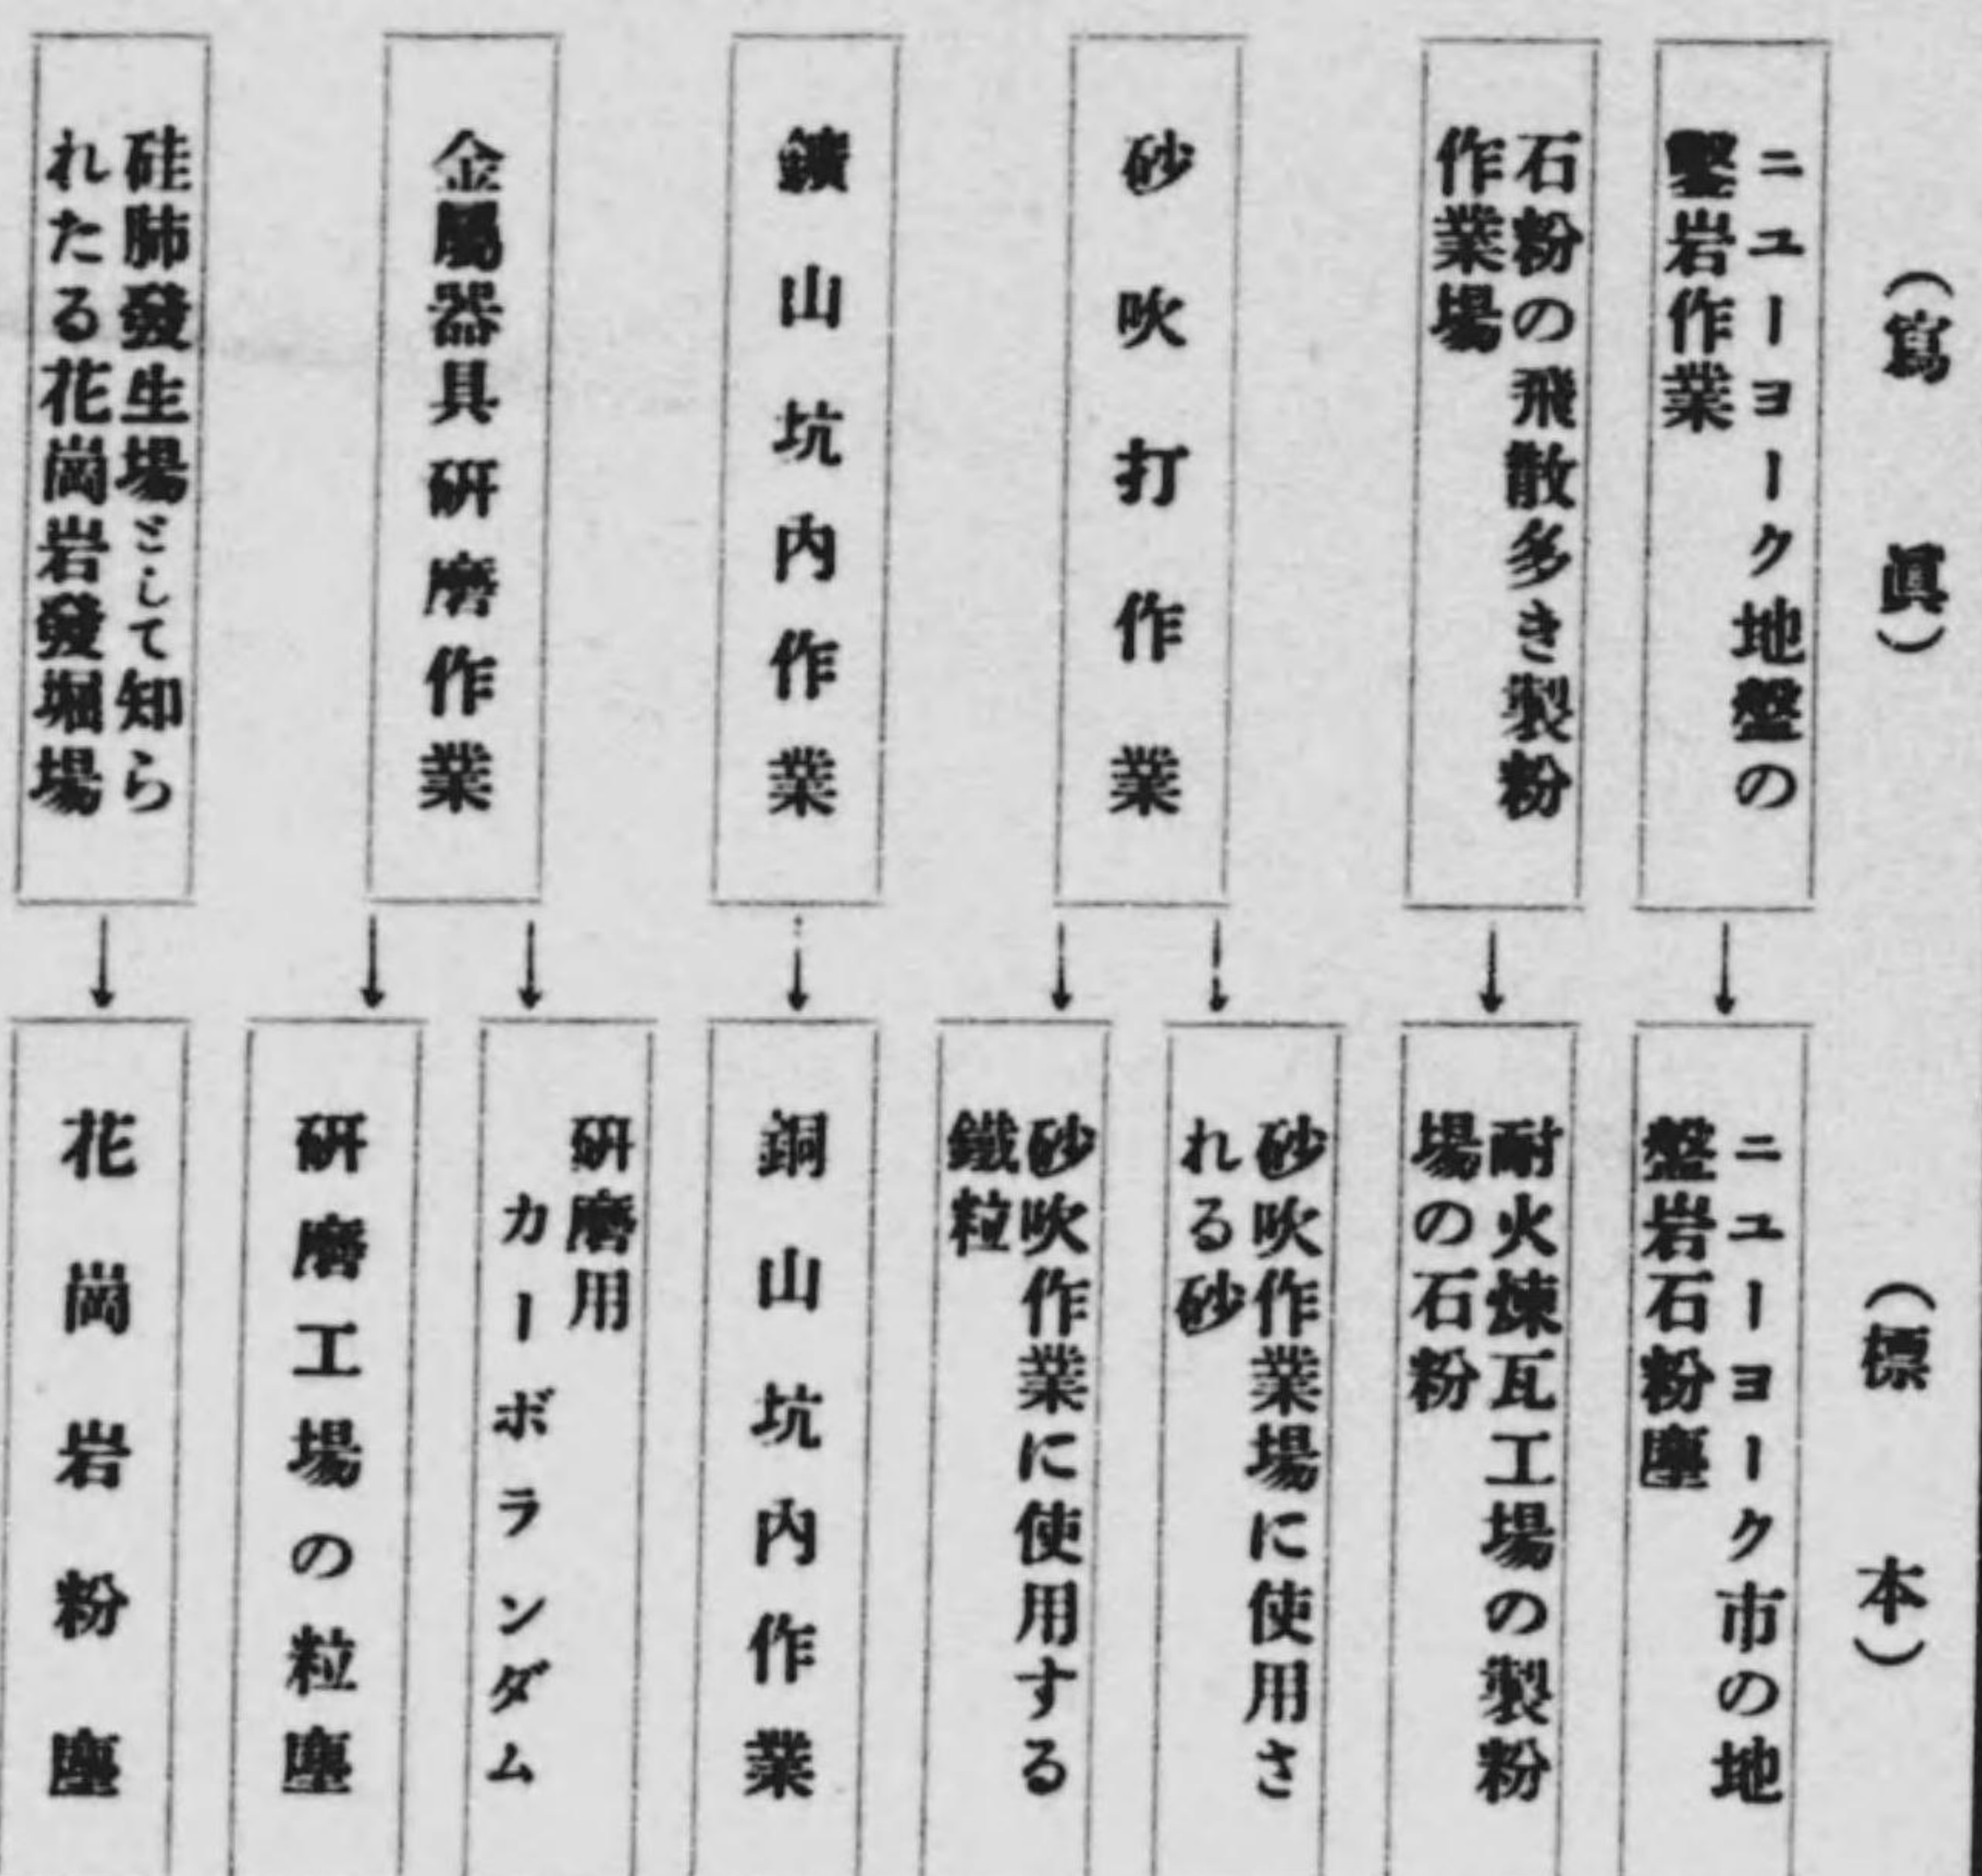 （寫眞）
ニユーヨーク地盤の
鑿岩作業
石粉の飛散多き製粉
作業場
砂吹打作業
鑛山坑内作業
金屬器具硏磨作業
硅肺發生場として知ら
れたる花崗岩發堀場
（標本）
ニユーヨーク市の地
盤岩石粉塵
耐火煉瓦工場の製粉
場の石粉
砂吹作業場に使用さ
れる砂
砂吹作業に使用する
鐵粒
銅山坑内作業
硏磨用
カーボランダム
硏磨工場の粒塵
花崗岩粉塵